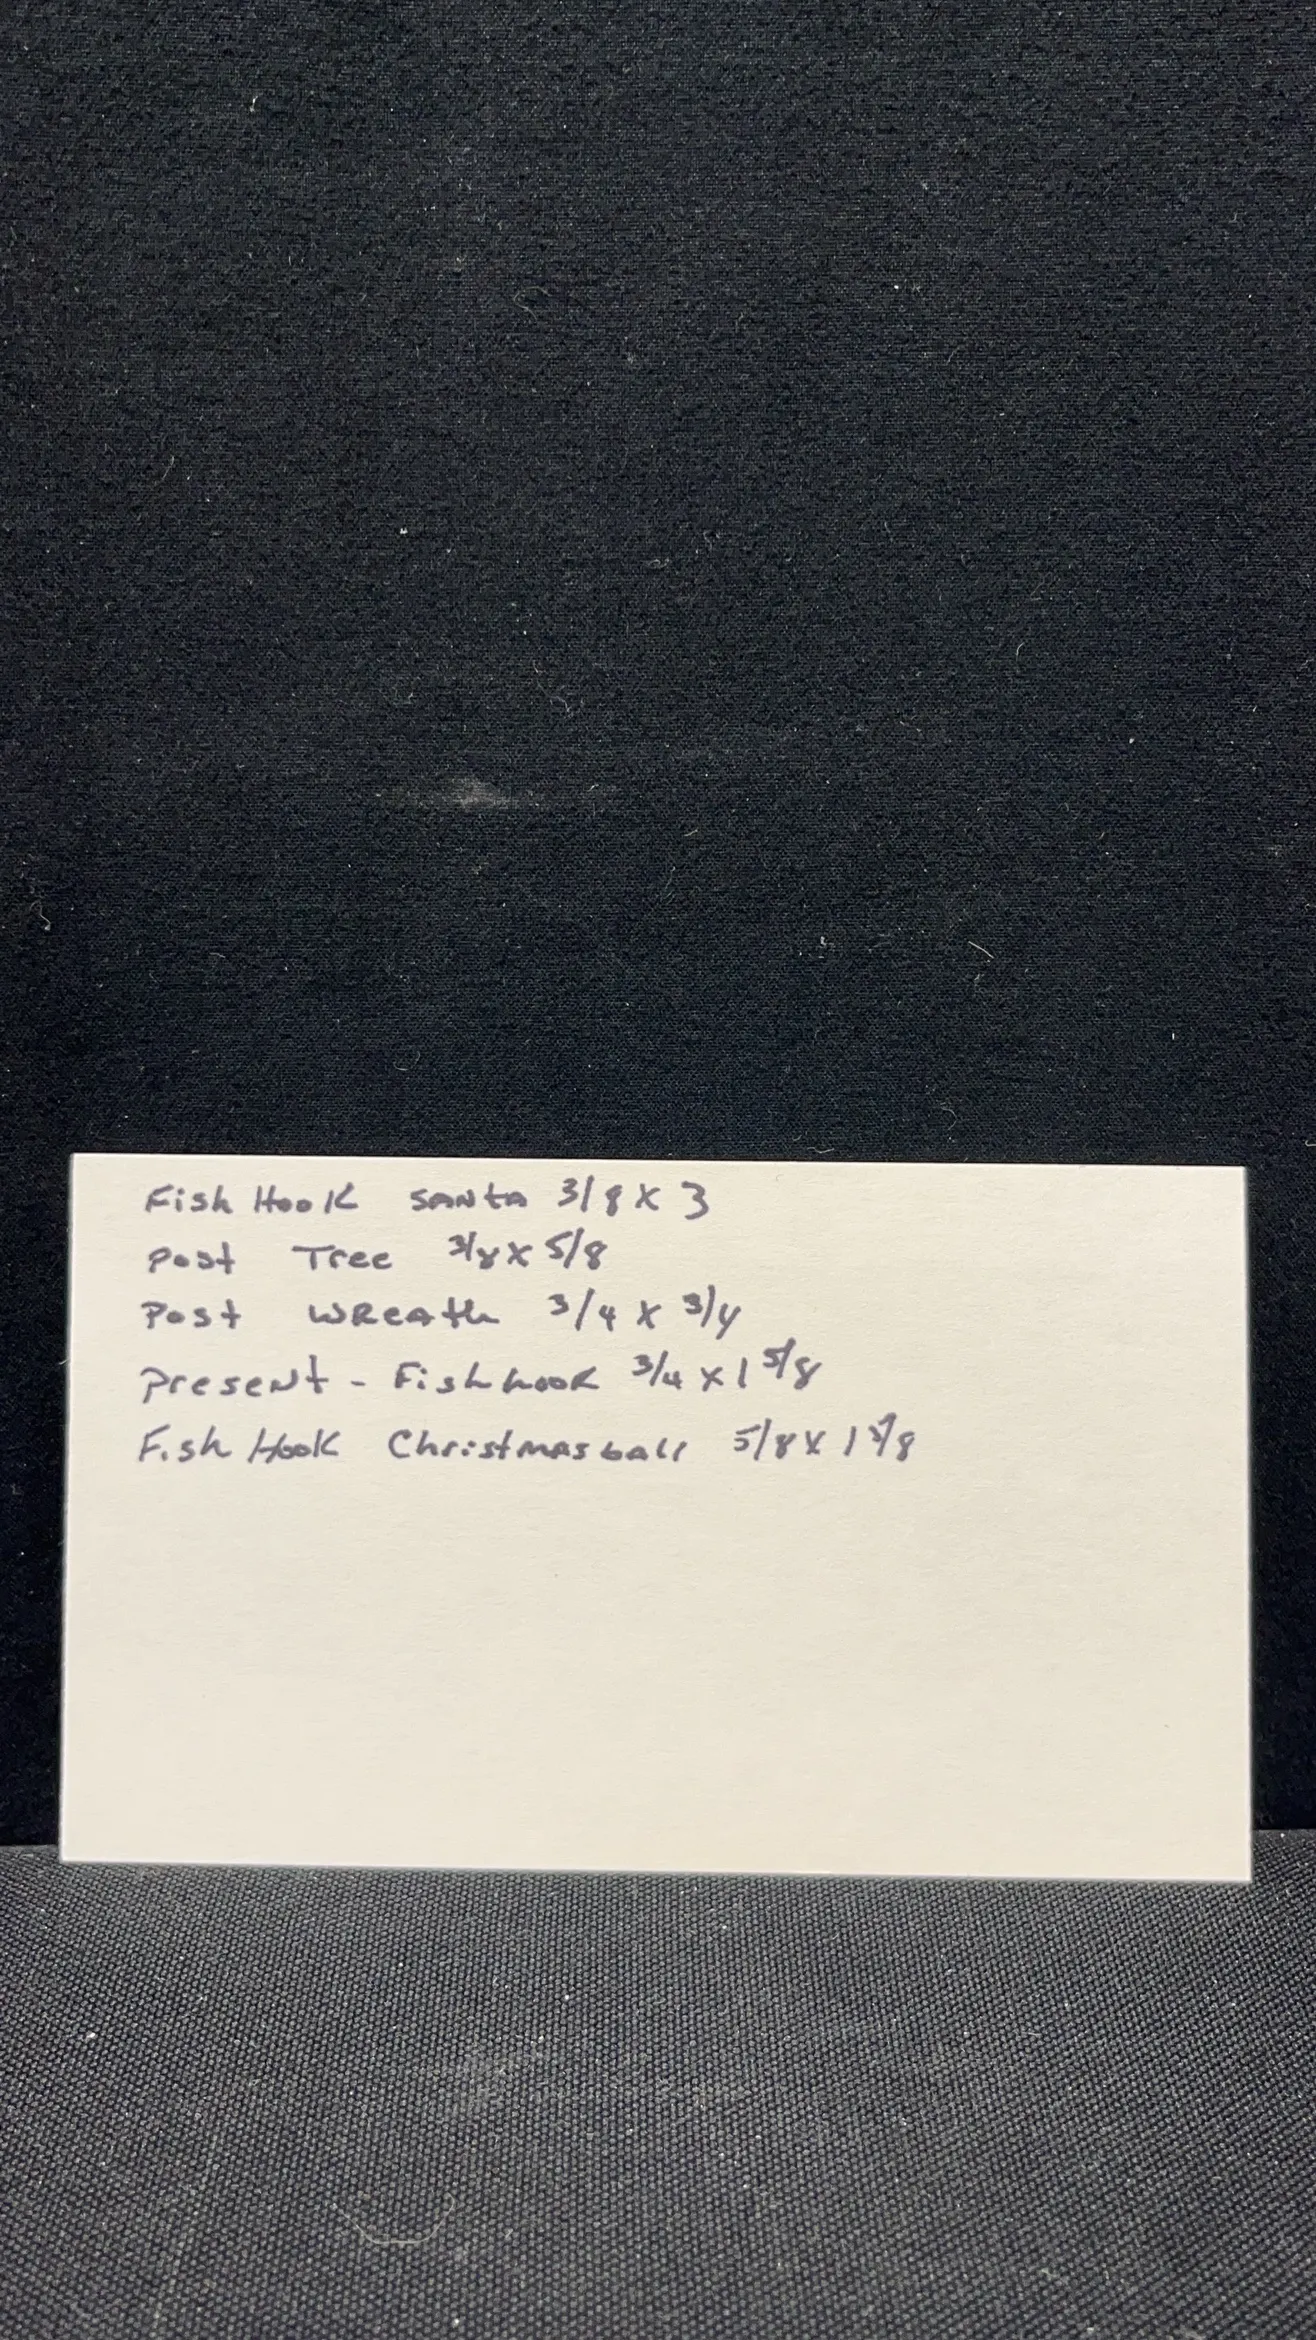 Fish Hook Santa 3/8 x 3
Post Tree 3/8 x 5/8
Post Wreath 3/4 x 3/4
Present - Fish hook 3/4 x 1 5/8
Fish Hook Christmas ball 5/8 x